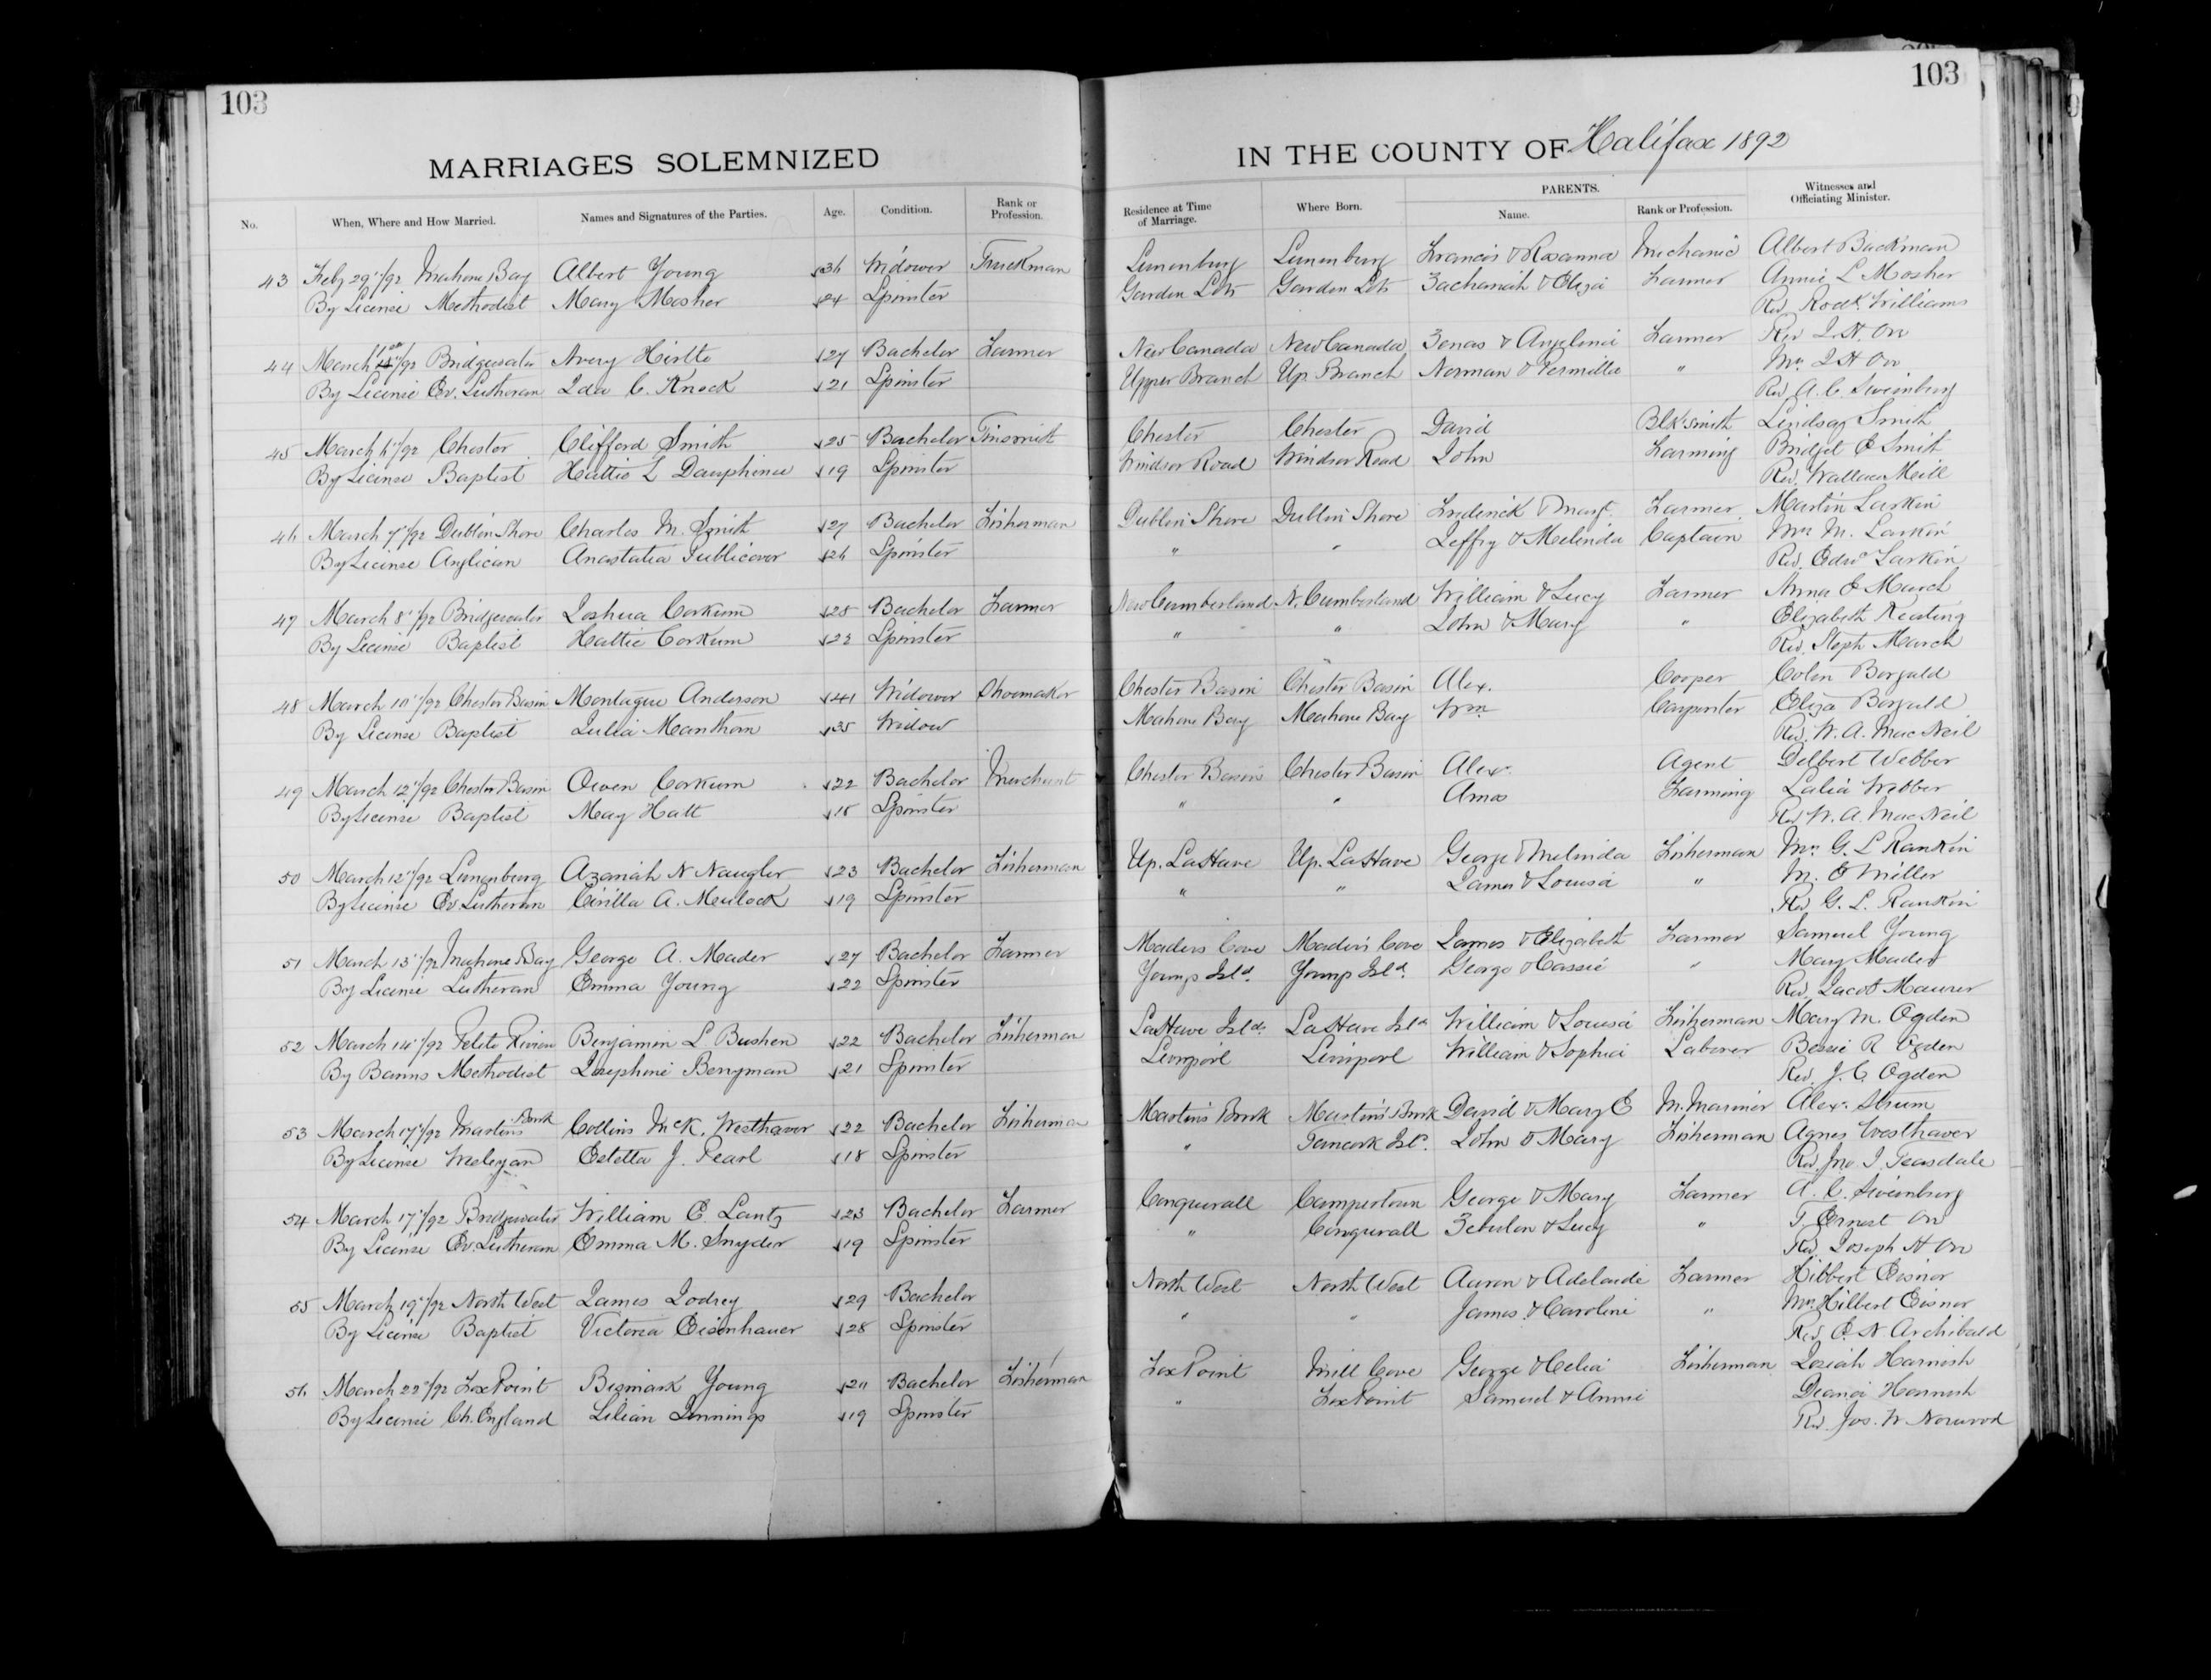 103
103
MARRIAGES SOLEMNIZED IN THE COUNTY OF Halifax 1892
No. When, Where and How Married. Names and Signatures of the Parties. Age. Condition. Rank or Profession. Residence at Time of Marriage. Where Born. PARENTS. Name. Rank or Profession. Witnesses and Officiating Minister.
43 Feby 29"/92 Mahone Bay Albert Young 36 Widower Truckman Lunenburg Lunenburg Francis & Rosanna Mechanic Albert Backman
By License Methodist Mary Mosher 24 Spinster Garden Lots Garden Lots Zachariah & Eliza Farmer Annie L Mosher
Rev Rodk. Williams
44 March /92 Bridgewater Avery Hirtle 27 Bachelor Farmer New Canada New Canada Zenas & Angelina Farmer Rev J. H. Orr
By License Ev. Lutheran Ida C. Knock 21 Spinster Upper Branch Up. Branch Norman & Permilla " Mrs J H Orr
Rev A. C. Sweinburg
45 March 6"/92 Chester Clifford Smith 25 Bachelor Tinsmith Chester Chester David Blk smith Lindsay Smith
By License Baptist Hattie L Dauphinee 19 Spinster Windsor Road Windsor Road John Farming Bridget E Smith
Rev. Wallace Neill
46 March 7"/92 Dublin Shore Charles M. Smith 27 Bachelor Fisherman Dublin Shore Dublin Shore Frederick & Margt. Farmer Martin Larkin
By License Anglican Anastatia Publicover 26 Spinster " " Jeffry & Melinda Captain Mrs M. Larkin
Rev. Edwd Larkin
47 March 8"/92 Bridgewater Joshua Corkum 28 Bachelor Farmer New Cumberland N. Cumberland William & Lucy Farmer Anna E March
By License Baptist Hattie Corkum 22 Spinster " " John & Mary " Elizabeth Keating
Rev. Steph March
48 March 10"/92 Chester Basin Montague Anderson 41 Widower Shoemaker Chester Basin Chester Basin Alex. Cooper Colen Borgald
By License Baptist Julia Manthorn 35 Widow Mahone Bay Mahone Bay Wm Carpenter Eliza Borgald
Rev. W. A. MacNeil
49 March 12"/92 Chester Basin Owen Corkum 22 Bachelor Merchant Chester Basin Chester Basin Alex. Agent Delbert Webber
By License Baptist May Hatt 18 Spinster " " Amos Farming Lalia Webber
Rev W. A. MacNeil
50 March 12"/92 Lunenburg Azariah N Naugler 23 Bachelor Fisherman Up. LaHave Up. LaHave George & Melinda Fisherman Mrs G. L Rankin
By License Ev. Lutheran Cirilla A. Mulock 19 Spinster " " James & Louisa " M. E Miller
Rev G. L. Rankin
51 March 13"/92 Mahone Bay George A. Mader 27 Bachelor Farmer Maders Cove Maders Cove James & Elizabeth Farmer Samuel Young
By License Lutheran Emma Young 22 Spinster Youngs Isld. Youngs Isld. George & Cassie " Mary Mader
Rev. Jacob Maurer
52 March 14"/92 Petite Riviere Benjamin L. Bushen 22 Bachelor Fisherman LaHave Isld. LaHave Isld William & Louisa Fisherman Mary M. Ogden
By Banns Methodist Josephine Berryman 21 Spinster Liverpool Liverpool William & Sophia Laborer Bessie R Ogden
Rev. J. C. Ogden
53 March 17"/92 Martins Brook Collins McK. Westhaver 22 Bachelor Fisherman Martins Brook Martins Brook David & Mary E M. Mariner Alex. Strum
By License Wesleyan Estella J. Pearl 18 Spinster " Tancook Isl. John & Mary Fisherman Agnes Westhaver
Rev. Jno. J. Teasdale
54 March 17"/92 Bridgewater William E. Lantz 23 Bachelor Farmer Conquerall Campertown George & Mary Farmer A. C. Sweinburg
By License Ev. Lutheran Emma M. Snyder 19 Spinster " Conquerall Zebulon & Lucy " T. Ernest Orr
Rev. Joseph H Orr
55 March 19"/92 North West James Jodrey 29 Bachelor North West North West Aaron & Adelaide Farmer Hibbert Eisnor
By License Baptist Victoria Eisenhauer 28 Spinster " " James & Caroline " Mrs Hilbert Eisnor
Rev. E. N. Archibald
56 March 22"/92 Fox Point Bismark Young 20 Bachelor Fisherman Fox Point Mill Cove George & Celia Fisherman Josiah Harnish
By License Ch. England Lilian Jennings 19 Spinster " Fox Point Samuel & Annie Deanci Harnish
Rev. Jos. W. Norwood